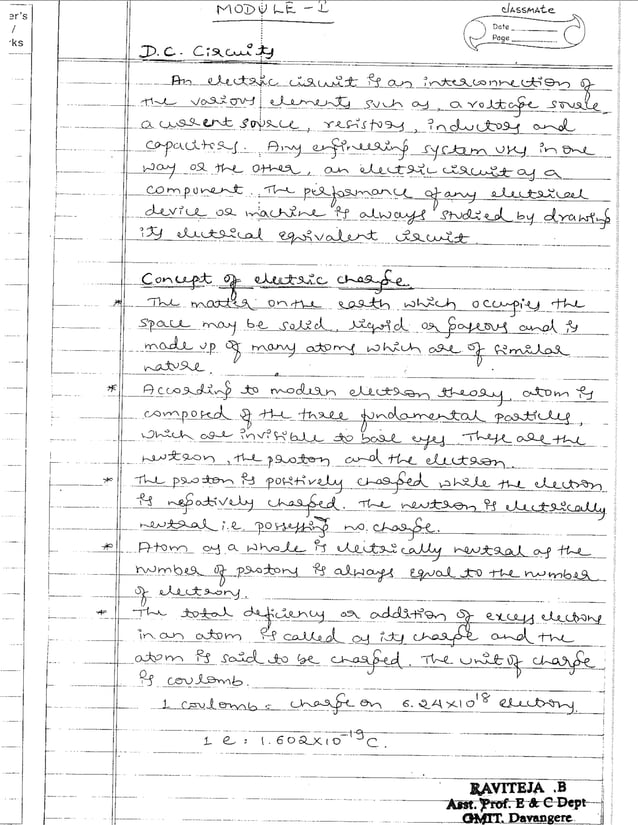 er's
/
ks
MODULE - I
classmate
Date
Page
D.C. Circuits
An electric circuit is an interconnection of
the various elements such as, a voltage source
a current source, resistors, inductors and
capacitors. Any engineering system uses in one
way or the other, an electric circuit as a
component. The performance of any electrical
device or machine is always studied by drawing
its electrical equivalent circuit
Concept of electric charge.
* The matter on the earth which occupies the
space may be solid, liquid or gaseous and is
made up of many atoms which are of similar
nature.
* According to modern electron theory, atom is
composed of the three fundamental particles,
which are invisible to bare eyes. These are the
neutron, the proton and the electron.
* The proton is positively charged while the electron
is negatively charged. The neutron is electrically
neutral i.e. possessing no charge.
* Atom as a whole is electrically neutral as the
number of protons is always equal to the number
of electrons.
* The total deficiency or addition of excess electrons
in an atom is called as its charge and the
atom is said to be charged. The unit of charge
is coulomb.
1 coulomb = charge on 6.24×10¹⁸ electrons.
1 e = 1.602×10⁻¹⁹ C.
RAVITEJA .B
Asst. Prof. E & C Dept
GMIT. Davangere